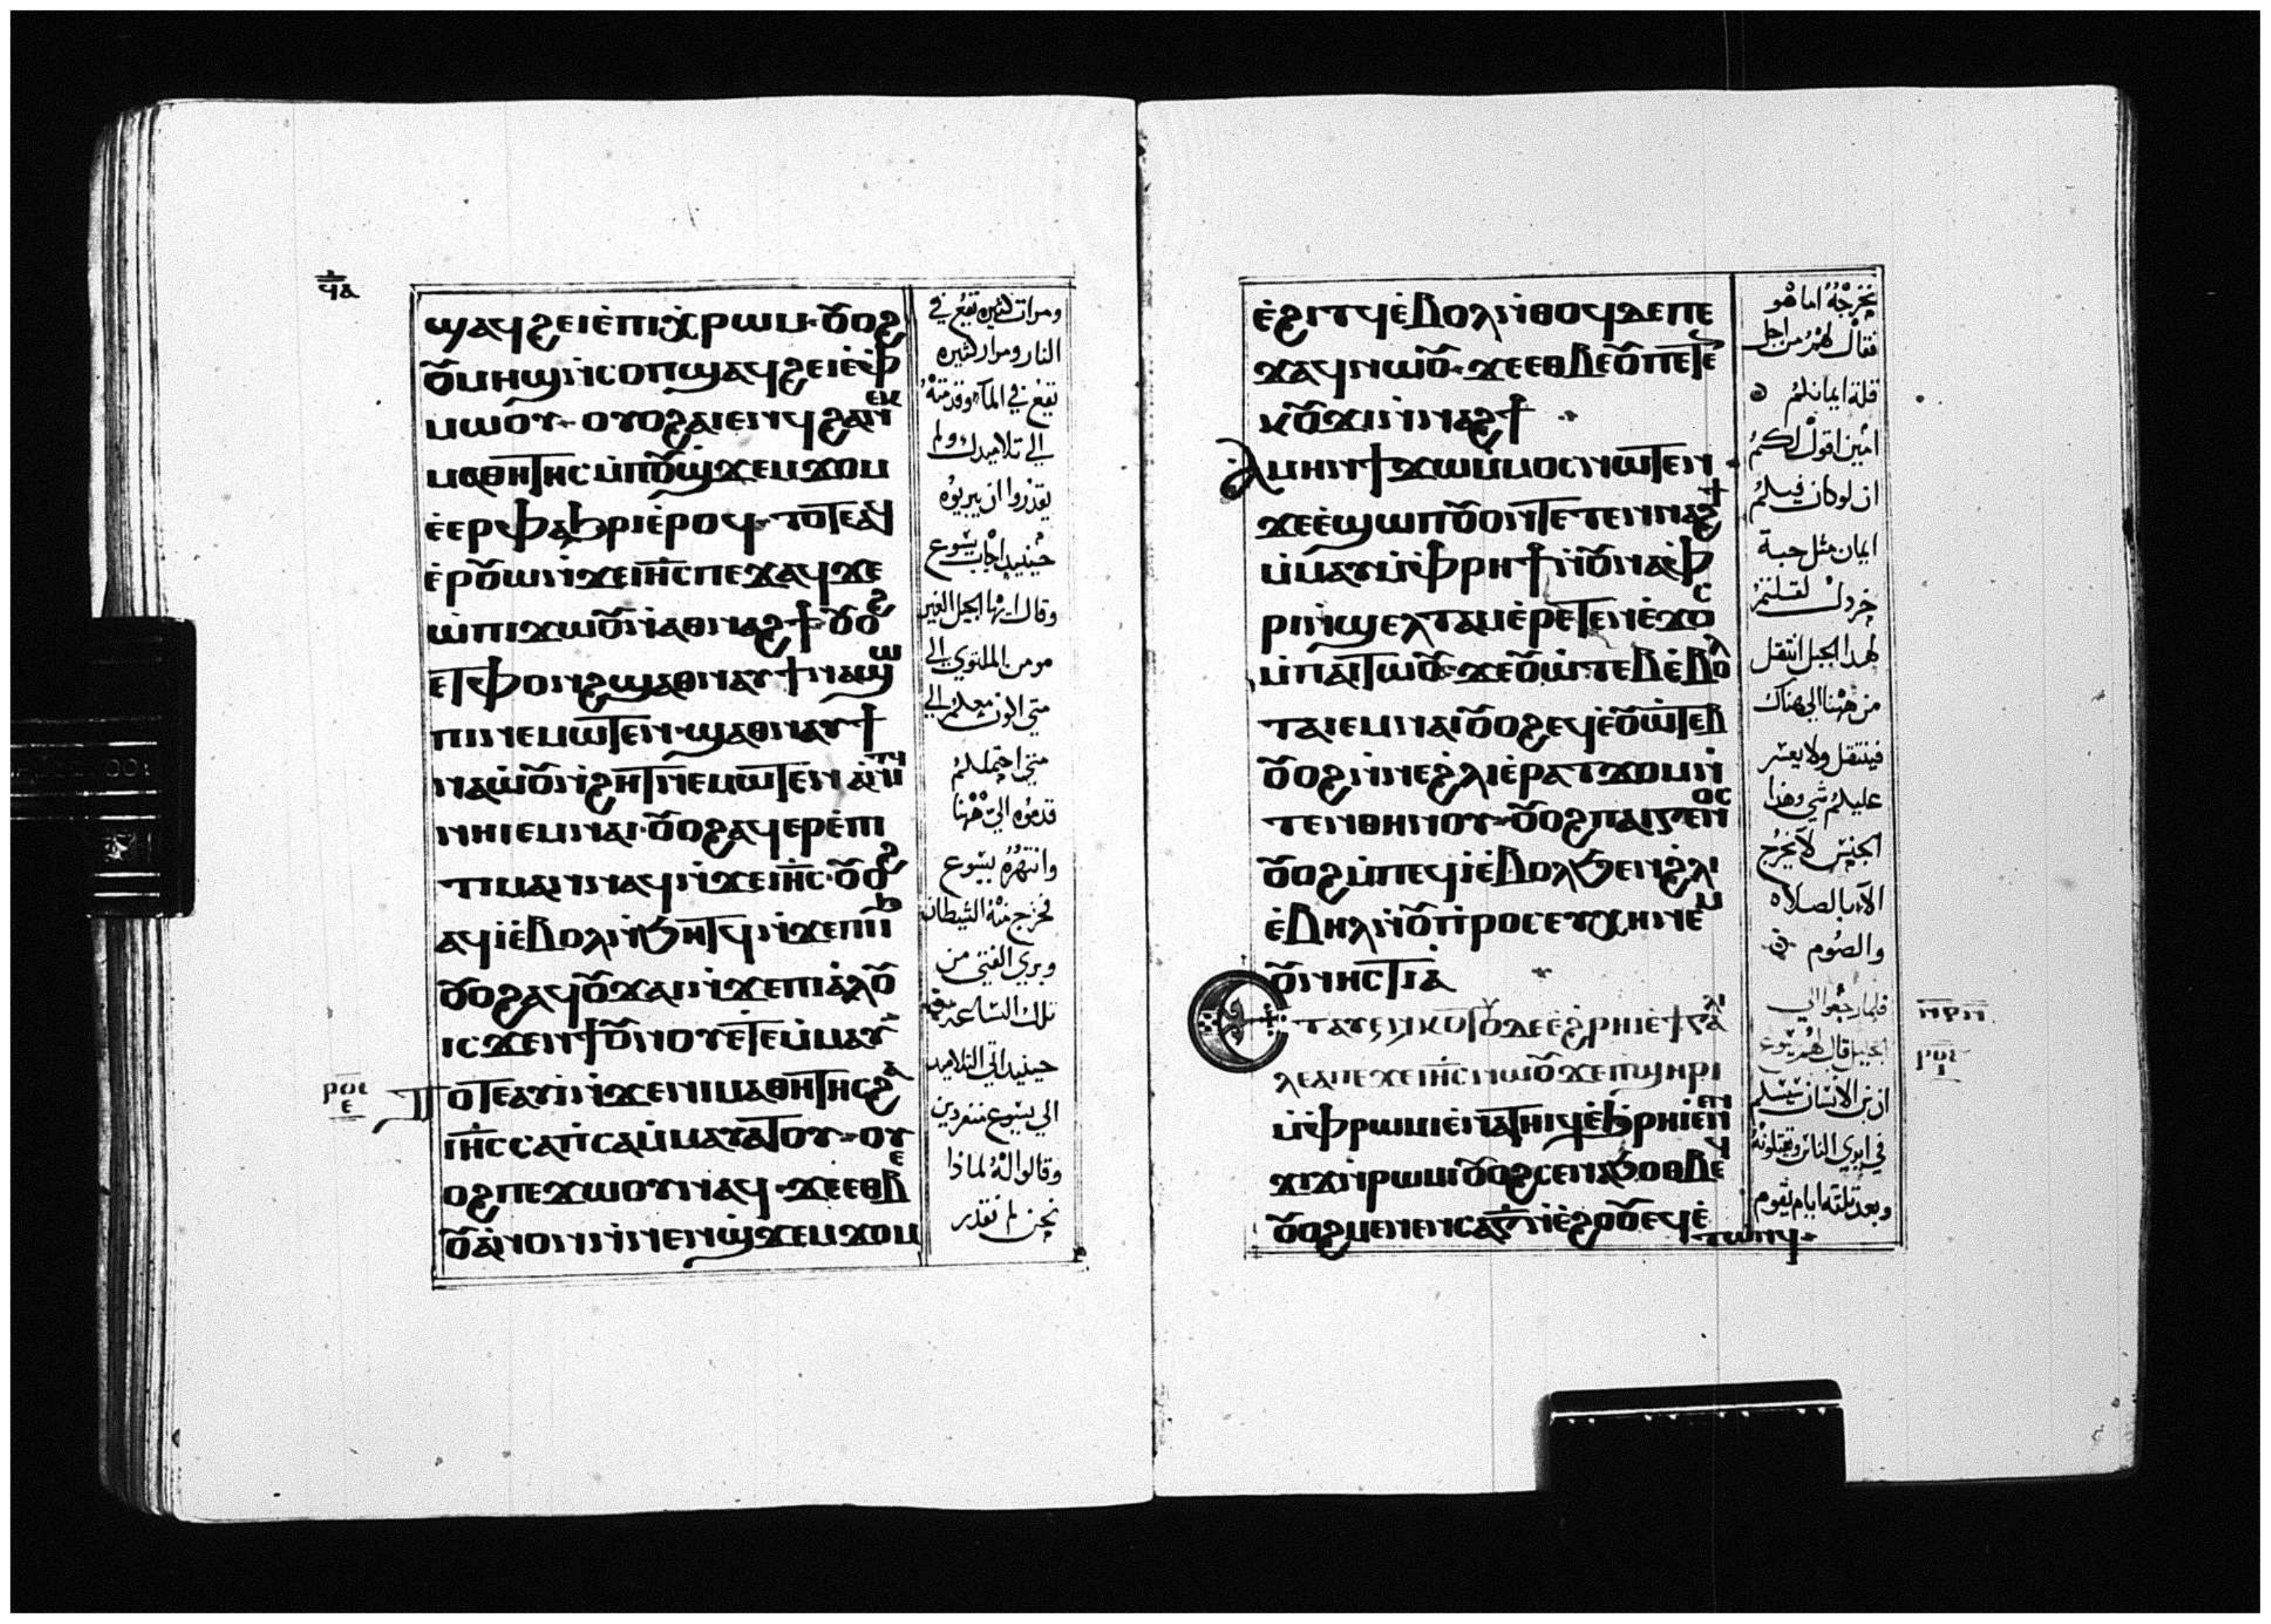 ϥⲁ
ϣⲁϥϩⲉⲓⲉ̀ⲡⲓⲭ̀ⲣⲱⲙ·ⲟⲩⲟϩ
ⲟⲩⲙⲏϣⲛ̀ⲥⲟⲡϣⲁϥϩⲉⲓⲉ̀ⲫ
ⲙⲱⲟⲩ·ⲟⲩⲟϩⲁⲓⲉⲛϥϩⲁⲛⲉⲕ
ⲙⲁⲑⲏⲧⲏⲥⲙ̀ⲡⲟⲩϣ̀ϫⲉⲙϫⲟⲙ
ⲉ̀ⲉⲣⲫⲁϧⲣⲓⲉ̀ⲣⲟϥ·ⲧⲟⲧⲉⲁϥ
ⲉ̀ⲣⲟⲩⲱⲛ̀ϫⲉⲓⲏ̅ⲥⲡⲉϫⲁϥϫⲉ
ⲱ̀ⲡⲓϫⲱⲟⲩⲛ̀ⲁⲑⲛⲁϩϯ·ⲟⲩⲟϩ
ⲉⲧⲫⲟⲛϩϣⲁⲑⲛⲁⲩϯⲛⲁϣⲱ
ⲡⲓⲛⲉⲙⲱⲧⲉⲛ·ϣⲁⲑⲛⲁⲩϯ
ⲛⲁⲱ̀ⲟⲩⲛ̀ϩⲏⲧⲛⲉⲙⲱⲧⲉⲛⲁ̀ⲛⲓⲧϥ
ⲛⲏⲓⲉⲙⲛⲁⲓ·ⲟⲩⲟϩⲁϥⲉⲣⲉ̀ⲡⲓ
ⲧⲓⲙⲁⲛⲛⲁϥⲛ̀ϫⲉⲓⲏ̅ⲥ·ⲟⲩⲟϩ
ⲁϥⲓ̀ⲉ̀ⲃⲟⲗⲛ̀ϧⲏⲧϥⲛ̀ϫⲉⲡⲓⲓϧ
ⲟⲩⲟϩⲁϥⲟⲩϫⲁⲓⲛ̀ϫⲉⲡⲓⲁ̀ⲗⲟⲩ
ⲓⲥϫⲉⲛϯⲟⲩⲛⲟⲩⲉ̀ⲧⲉⲙ̀ⲙⲁⲩ
ⲣⲟⲉ
ⲉ
ⲧⲟⲧⲉⲁⲩⲓ̀ⲛ̀ϫⲉⲛⲓⲙⲁⲑⲏⲧⲏⲥϩⲁ
ⲓⲏ̅ⲥⲥⲁⲡ̀ⲥⲁⲙ̀ⲙⲁⲩⲁⲧⲟⲩ·ⲟⲩ
ⲟϩⲡⲉϫⲱⲟⲩⲛⲁϥ·ϫⲉⲉⲑⲃⲉ
ⲟⲩⲁ̀ⲛⲟⲛⲛ̀ⲡⲉⲛϣ̀ϫⲉⲙϫⲟⲙ
ومرات كثيره تقع في
النار ومرار كثيره
تقع في المآء وقدمته
الي تلاميدك ولم
يقدروا ان يبريوه
حينيد اجاب يسوع
وقال ايها الجيل الغير
مومن الملتوي الي
متي اكون معكم الي
متي احتملكم
قدموه الي ههنا
وانتهره يسوع
فخرج منه الشيطان
وبري الفتي من
تلك الساعة
حينيد اتي التلاميد
الي يسوع منفردين
وقالوا له لماذا
نحن لم نقدر
ⲉ̀ϩⲓⲧϥⲉ̀ⲃⲟⲗⲛ̀ⲑⲟϥⲇⲉⲡⲉ
ϫⲁϥⲛⲱⲟⲩ·ϫⲉⲉⲑⲃⲉⲟⲩⲡⲉⲧⲉ
ⲕⲟⲩϫⲓⲛ̀ⲛⲁϩϯ
ⲁⲙⲏⲛϯϫⲱⲙ̀ⲙⲟⲥⲛⲱⲧⲉⲛ
ϫⲉⲉ̀ϣⲱⲡⲟⲩⲟⲛⲧⲉⲧⲉⲛⲛⲁϩϯ
ⲙ̀ⲙⲁⲩⲙ̀ⲫⲣⲏϯⲛ̀ⲟⲩⲛⲁⲫ
ⲣⲓⲛ̀ϣⲉⲗⲧⲁⲙⲉ̀ⲣⲉⲧⲉⲛⲉ̀ϫⲟⲥ
ⲙ̀ⲡⲁⲓⲧⲱⲟⲩ·ϫⲉⲟⲩⲱ̀ⲧⲉⲃⲉ̀ⲃⲟⲗ
ⲧⲁⲓⲉⲙⲛⲁⲓⲟⲩⲟϩⲉϥⲉ̀ⲟⲩⲱ̀ⲧⲉⲃ
ⲟⲩⲟϩⲛ̀ⲛⲉϩ̀ⲗⲓⲉ̀ⲣⲁⲧϫⲟⲙⲛ̀
ⲧⲉⲛⲑⲏⲛⲟⲩ·ⲟⲩⲟϩⲡⲁⲓⲅⲉⲛⲟⲥ
ⲟⲩⲟϩⲙ̀ⲡⲉϥⲓ̀ⲉ̀ⲃⲟⲗϧⲉⲛϩ̀ⲗⲓ
ⲉ̀ⲃⲏⲗⲛ̀ⲟⲩⲡ̀ⲣⲟⲥⲉⲩⲭⲏⲛⲉⲙ
ⲟⲩⲛⲏⲥⲧⲓⲁ̀
ⲉⲧⲁⲩⲥⲛⲕⲟⲧⲟⲩⲇⲉⲉ̀ϩ̀ⲣⲏⲓⲉ̀ϯⲅⲁⲗⲓ
ⲗⲉⲁⲡⲉϫⲉⲓⲏ̅ⲥⲛⲱⲟⲩϫⲉⲡϣⲏⲣⲓ
ⲙ̀ⲫⲣⲱⲙⲓⲉ̀ⲛⲁⲧⲏⲓϥⲉ̀ϧ̀ⲣⲏⲓⲉ̀ⲛⲉⲛ
ϫⲓϫⲛ̀ⲣⲱⲙⲓⲟⲩⲟϩⲥⲉⲛⲁϧⲟⲑⲃⲉϥ
ⲟⲩⲟϩⲙⲉⲛⲉⲛⲥⲁⲅ̅ⲛ̀ⲉ̀ϩⲟⲟⲩⲉϥⲉ̀
ⲧⲱⲛϥ·
نخرجه اما هو
فقال لهم من اجل
قلة ايمانكم
امين اقول لكم
ان لو كان فيكم
ايمان مثل حبة
خردل لقلتم
لهدا الجبل انتقل
من ههنا الي هناك
فينتقل ولا يعسر
عليكم شي وهذا
الجنس لا يخرج
الا بالصلاه
والصوم
فلما رجعوا الي
الجليل قال لهم يسوع
ان بن الانسان سيسلم
في ايدي الناس وتقتلونه
وبعد تلته ايام يقوم